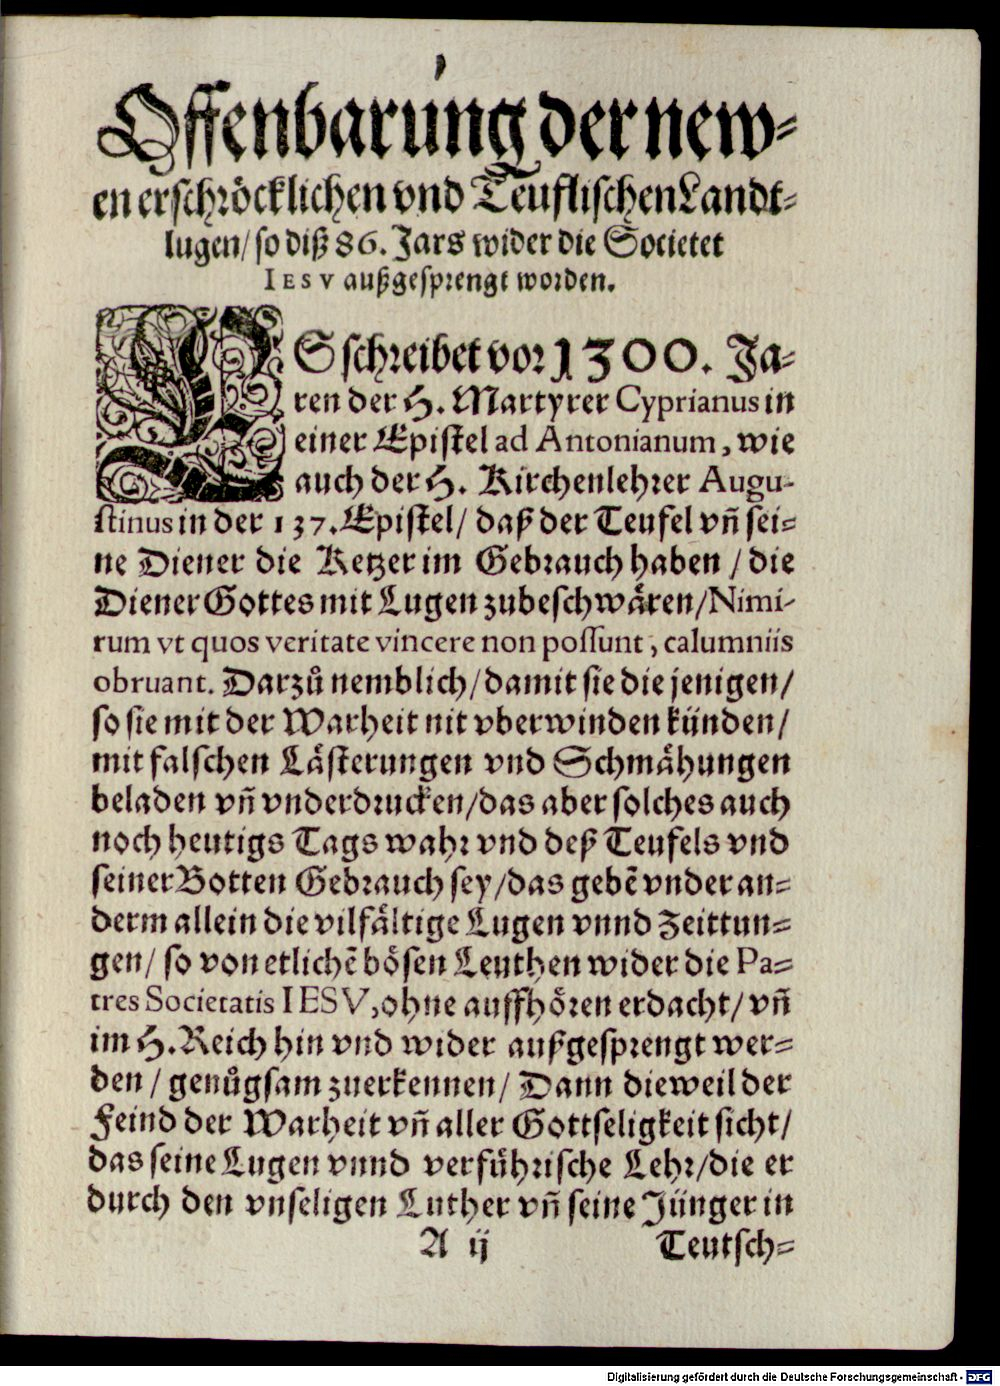 Offenbarung der new-
en erschröcklichen vnd Teuflischen Landt-
lugen/ so diß 86. Jars wider die Societet
IESV außgesprengt worden.
ES schreibet vor 1300. Ja-
ren der H. Martyrer Cyprianus in
einer Epistel ad Antonianum, wie
auch der H. Kirchenlehrer Augu-
stinus in der 137. Epistel/ daß der Teufel vñ sei-
ne Diener die Ketzer im Gebrauch haben / die
Diener Gottes mit Lugen zubeschwären/ Nimi-
rum vt quos veritate vincere non possunt, calumniis
obruant. Darzů nemblich/ damit sie die jenigen/
so sie mit der Warheit nit vberwinden künden/
mit falschen Lästerungen vnd Schmähungen
beladen vñ vnderdrucken/ das aber solches auch
noch heutigs Tags wahr vnd deß Teufels vnd
seiner Botten Gebrauch sey/ das gebẽ vnder an-
derm allein die vilfältige Lugen vnnd Zeittun-
gen/ so von etlichẽ bösen Leuthen wider die Pa-
tres Societatis IESV, ohne auffhören erdacht/ vñ
im H. Reich hin vnd wider außgesprengt wer-
den / genůgsam zuerkennen/ Dann dieweil der
Feind der Warheit vñ aller Gottseligkeit sicht/
das seine Lugen vnnd verführische Lehr/ die er
durch den vnseligen Luther vñ seine Jünger in
A ij Teutsch-
Digitalisierung gefördert durch die Deutsche Forschungsgemeinschaft - DFG